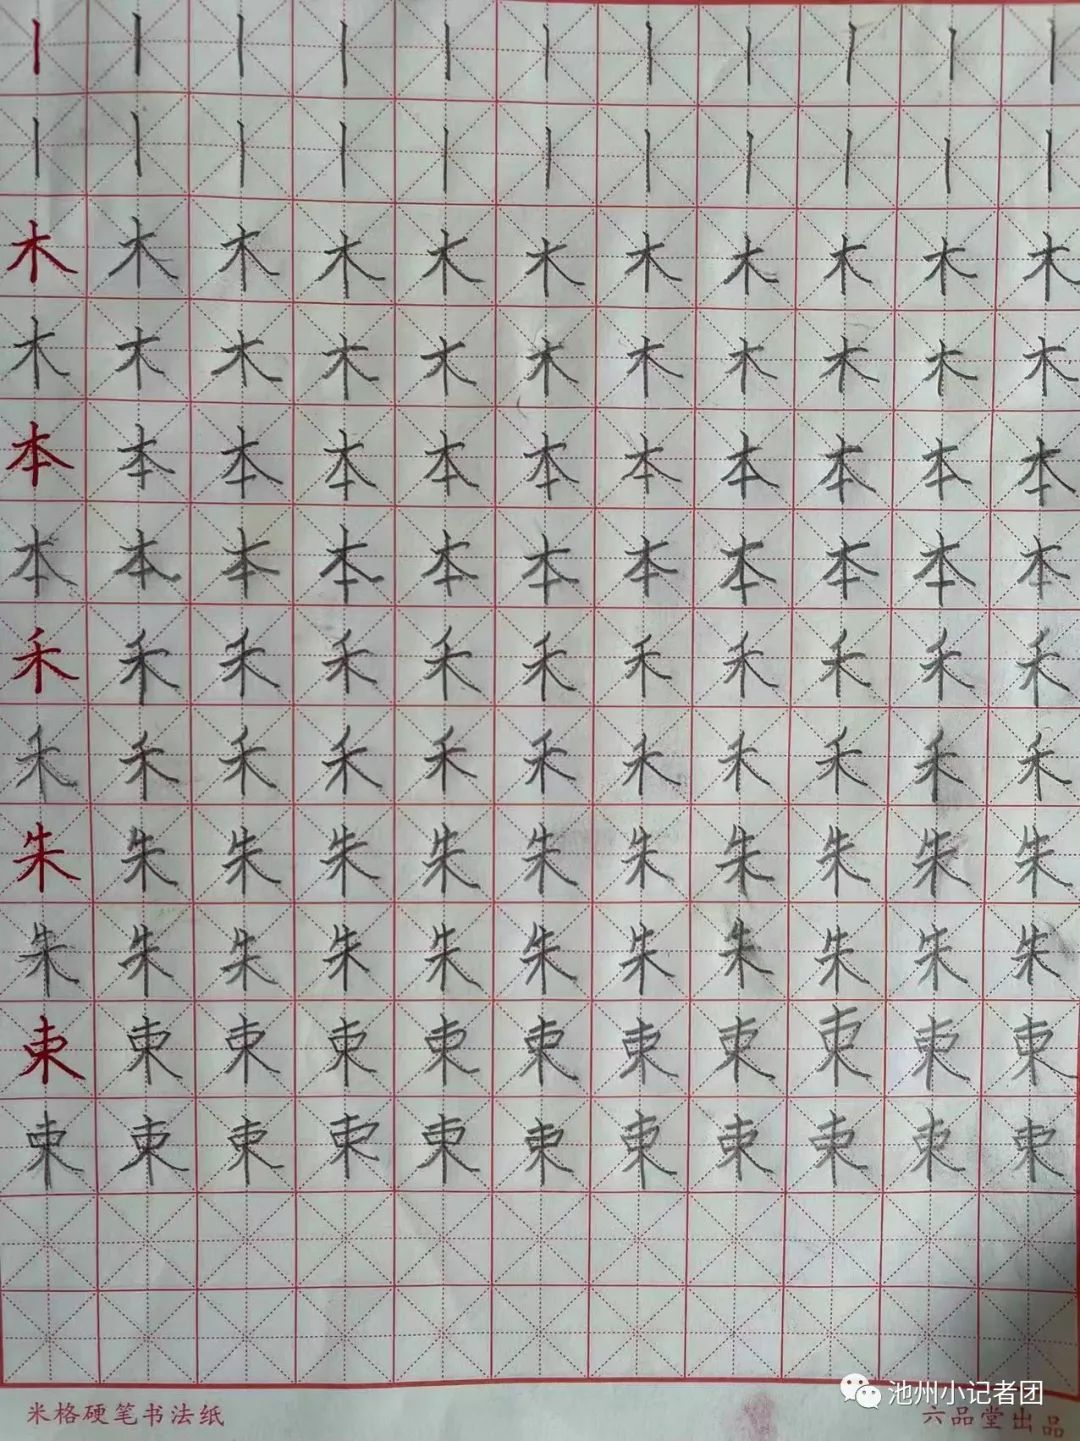 丨丨丨丨丨丨丨丨丨丨丨
丨丨丨丨丨丨丨丨丨丨丨
木木木木木木木木木木木
木木木木木木木木木木木
本本本本本本本本本本本
本本本本本本本本本本本
禾禾禾禾禾禾禾禾禾禾禾
禾禾禾禾禾禾禾禾禾禾禾
朱朱朱朱朱朱朱朱朱朱朱
朱朱朱朱朱朱朱朱朱朱朱
束束束束束束束束束束束
束束束束束束束束束束束
池州小记者团
米格硬笔书法纸 六品堂出品